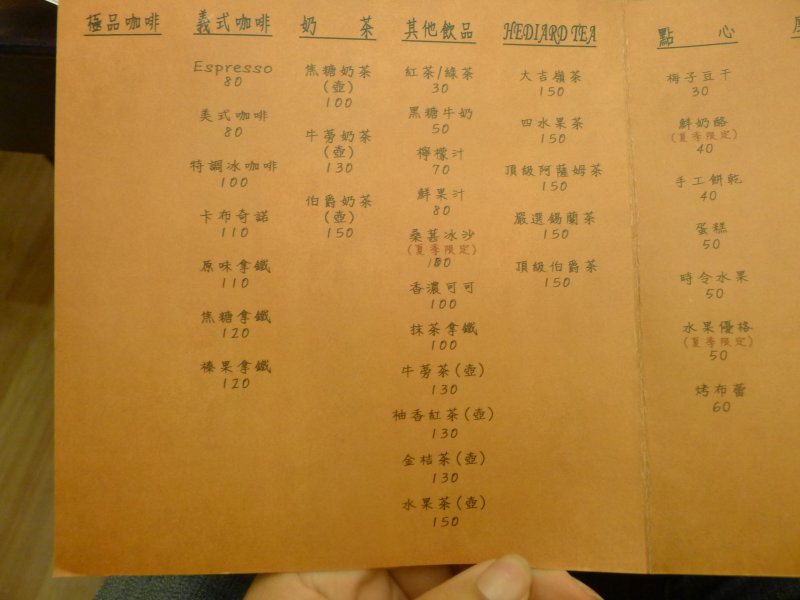 極品咖啡
義式咖啡
Espresso
80
美式咖啡
80
特調冰咖啡
100
卡布奇諾
110
原味拿鐵
110
焦糖拿鐵
120
榛果拿鐵
120
奶 茶
焦糖奶茶
(壺)
100
牛蒡奶茶
(壺)
130
伯爵奶茶
(壺)
150
其他飲品
紅茶/綠茶
30
黑糖牛奶
50
檸檬汁
70
鮮果汁
80
桑葚冰沙
(夏季限定)
香濃可可
100
抹茶拿鐵
100
牛蒡茶(壺)
130
柚香紅茶(壺)
130
金桔茶(壺)
130
水果茶(壺)
150
HEDIARD TEA
大吉嶺茶
150
四水果茶
150
頂級阿薩姆茶
150
嚴選錫蘭茶
150
頂級伯爵茶
150
點 心
梅子豆干
30
鮮奶酪
(夏季限定)
40
手工餅乾
40
蛋糕
50
時令水果
50
水果優格
(夏季限定)
50
烤布蕾
60